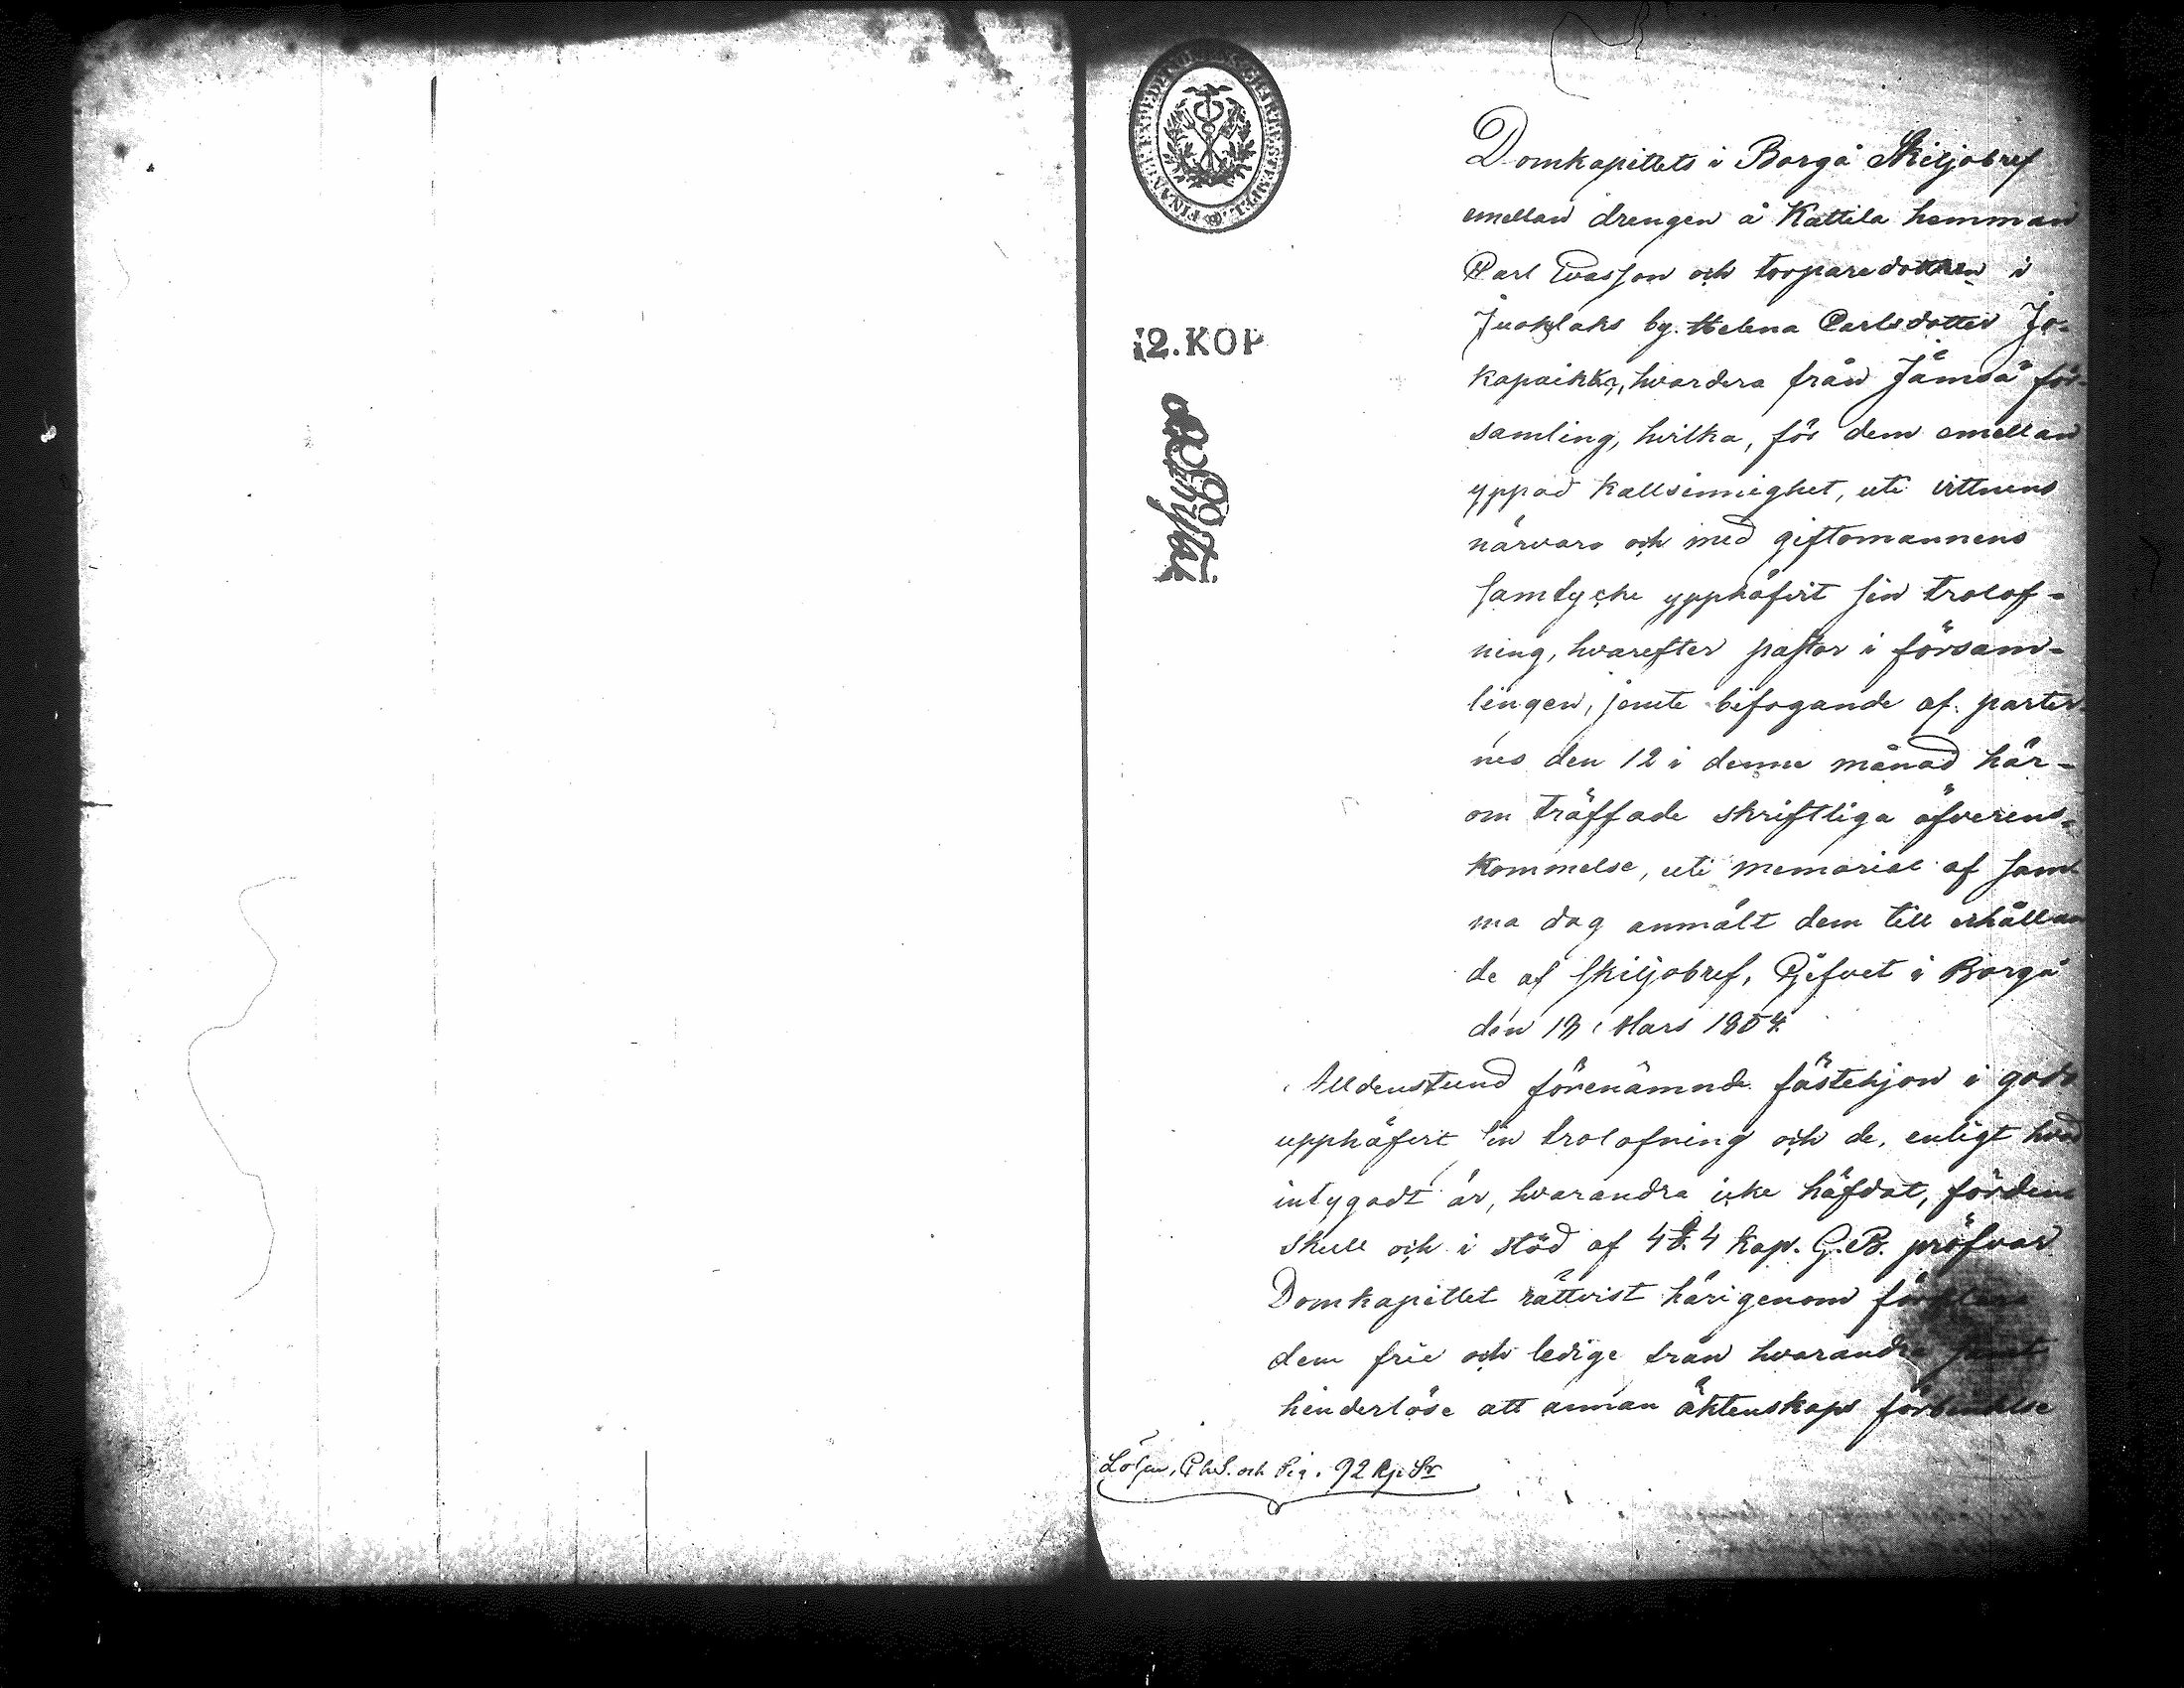 FINANCE EXPEDITIONENS CHARTÆSTEMPEL.
12. KOP
Domkapitlets i Borgå Skiljobref
emellan drengen å Kattila hemman
Carl Evasson och torparedottren i
Juokslaks by Helena Carlsdotter Jo-
kapaikka, hvardera från Jämsä för-
samling, hvilka, för dem emellan
yppad kallsinnighet, uti vittnens
närvaro och med giftomannens
samtycke upphäfvit sin trolof-
ning, hvarefter pastor i försam-
lingen, jemte bifogande af parter-
nes den 12 i denne månad här-
om träffade skriftliga öfverens-
kommelse, uti memorial af sam-
ma dag anmält dem till erhållan
de af skiljobref, Gifvet i Borgå
den Mars 1854.
Alldenstund förenämnde fästehjon i godo
upphäfvit sin trolofning och de, enligt hvad
intygadt är, hvarandra icke häfdat, fördens
skull och i stöd af 4 §. 4 Kap. G.B. pröfvar
Domkapitlet rättvist härigenom förklara
dem frie och ledige från hvarandra samt
hinderlöse att annan äktenskaps förbindelse
Lösen, Ch.S. och Sig. 92 kp. Sr